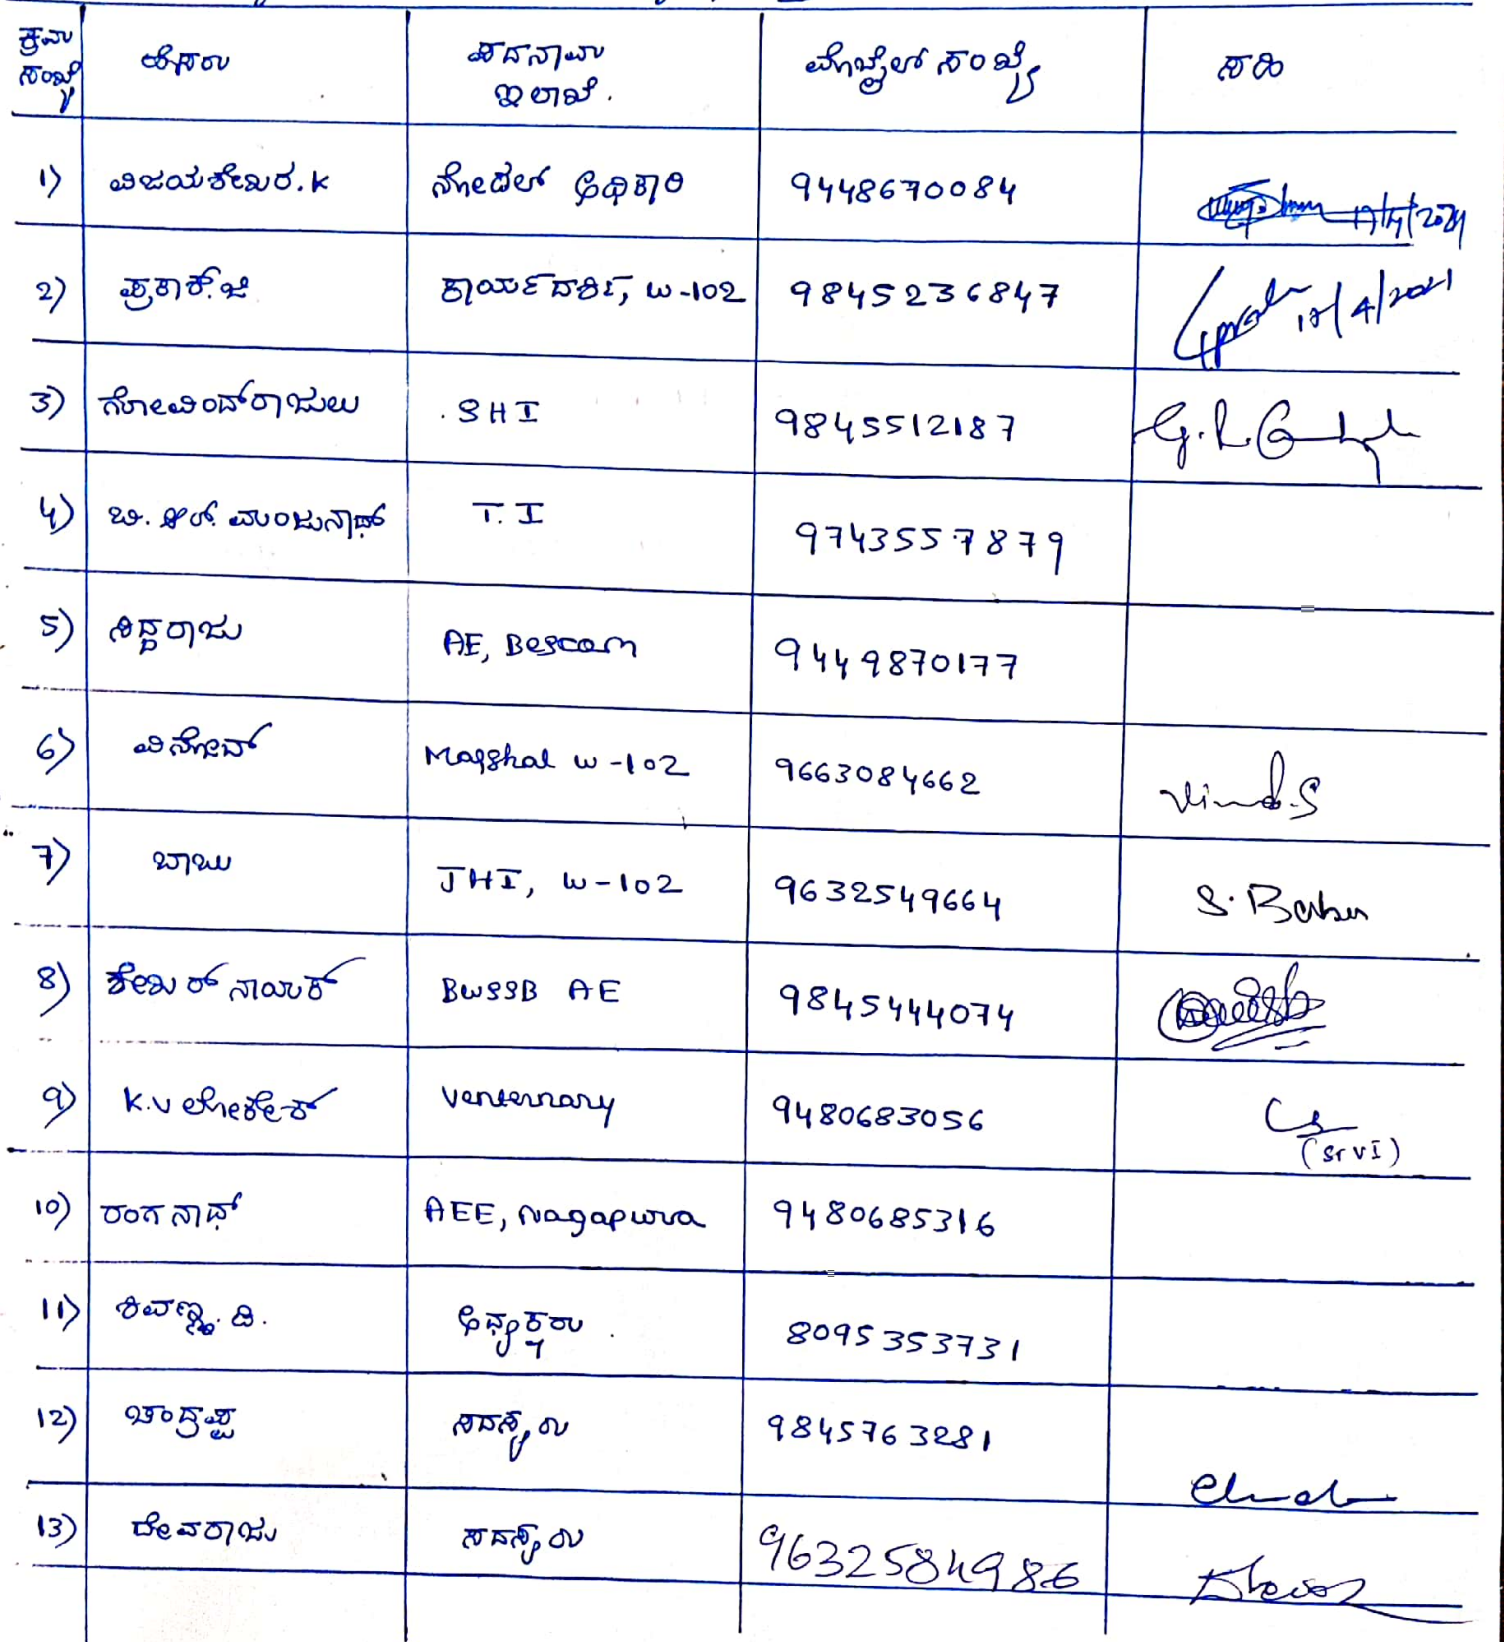 ಕ್ರಮ ಸಂಖ್ಯೆ ಹೆಸರು ಪದನಾಮ ಇಲಾಖೆ. ಮೊಬೈಲ್ ಸಂಖ್ಯೆ ಸಹಿ
1) ವಿಜಯಶೇಖರ.K ನೋಡಲ್ ಅಧಿಕಾರಿ 9448670084
2) ಪ್ರಕಾಶ್.ಜಿ ಕಾರ್ಯದರ್ಶಿ, W-102 9845236847 17/4/2021
3) ಗೋವಿಂದ್‌ರಾಜುಲು SHI 9845512187
4) ಬಿ. ಆರ್. ಮಂಜುನಾಥ್ T.I 9743557879
5) ಸಿದ್ದರಾಜು AE, Bescom 9449870177
6) ವಿನೋದ್ Marshal W-102 9663084662 Vinod.S
7) ಬಾಬು JHI, W-102 9632549664 S. Babu
8) ಶೇಖರ್ ನಾಯಕ್ BWSSB AE 9845444074
9) K.V ಲೋಕೇಶ್ Venternary 9480683056 (Sr VI)
10) ರಂಗನಾಥ್ AEE, Nagapura 9480685316
11) ಶಿವಣ್ಣ. ಡಿ. ಅಧ್ಯಕ್ಷರು. 8095353731
12) ಚಂದ್ರಪ್ಪ ಸದಸ್ಯರು 9845763281
13) ದೇವರಾಜು ಸದಸ್ಯರು 9632584986